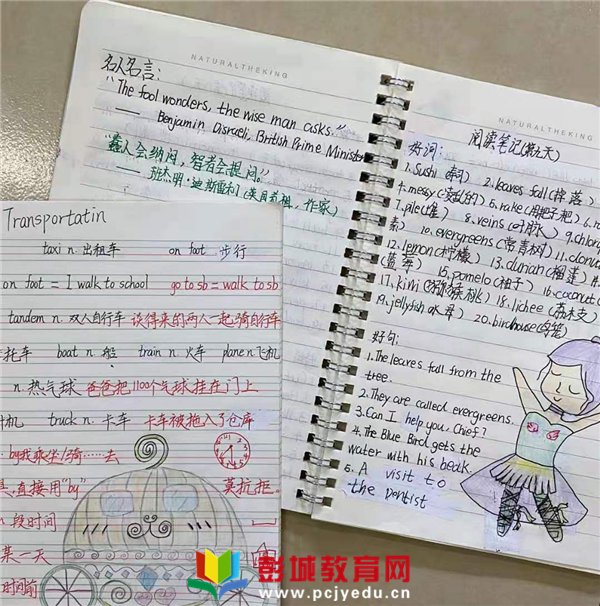 NATURALTHEKING
名人名言:
"The fool wonders, the wise man asks."
—— Benjamin Disraeli, British Prime Minister
"蠢人会纳闷,智者会提问。"
—— 班杰明·迪斯雷利(英国首相,作家)
NATURALTHEKING
阅读笔记(第九天)
好词:
1.Sushi(寿司) 2.leaves fall(掉落)
4.messy 5.rake(用耙子耙)
7.pile(堆) 8.veins(叶脉) 9.chloro
素) 10.evergreens(常青树) 11.donu
12.lemon(柠檬) 13.durian(榴莲)
(蓝莓) 15.pomelo(柚子) 16.coconut(
17.kiwi(猕猴桃) 18.lichee(荔枝)
19.jellyfish(水母) 20.birdhouse(鸟笼)
好句:
1.The leaves fall from the
tree.
2.They are called evergreens.
3.Can I help you Chief?
4.The Blue Bird gets the
water with his beak.
5. A visit to
the dentist
Transportatin
taxi n. 出租车 on foot 步行
on foot = I walk to school go to sb = walk to sb
tandem n. 双人自行车 谈得来的两人一起骑自行车
托车 boat n. 船 train n. 火车 plane n. 飞机
n. 热气球 爸爸把1100个气球挂在门上
机 truck n. 卡车 卡车被拖入了仓库
by我乘坐/骑……去
直接用"by" 莫抗拒.
n 段时间
某一天
时间前
彭城教育网
www.pcjyedu.cn